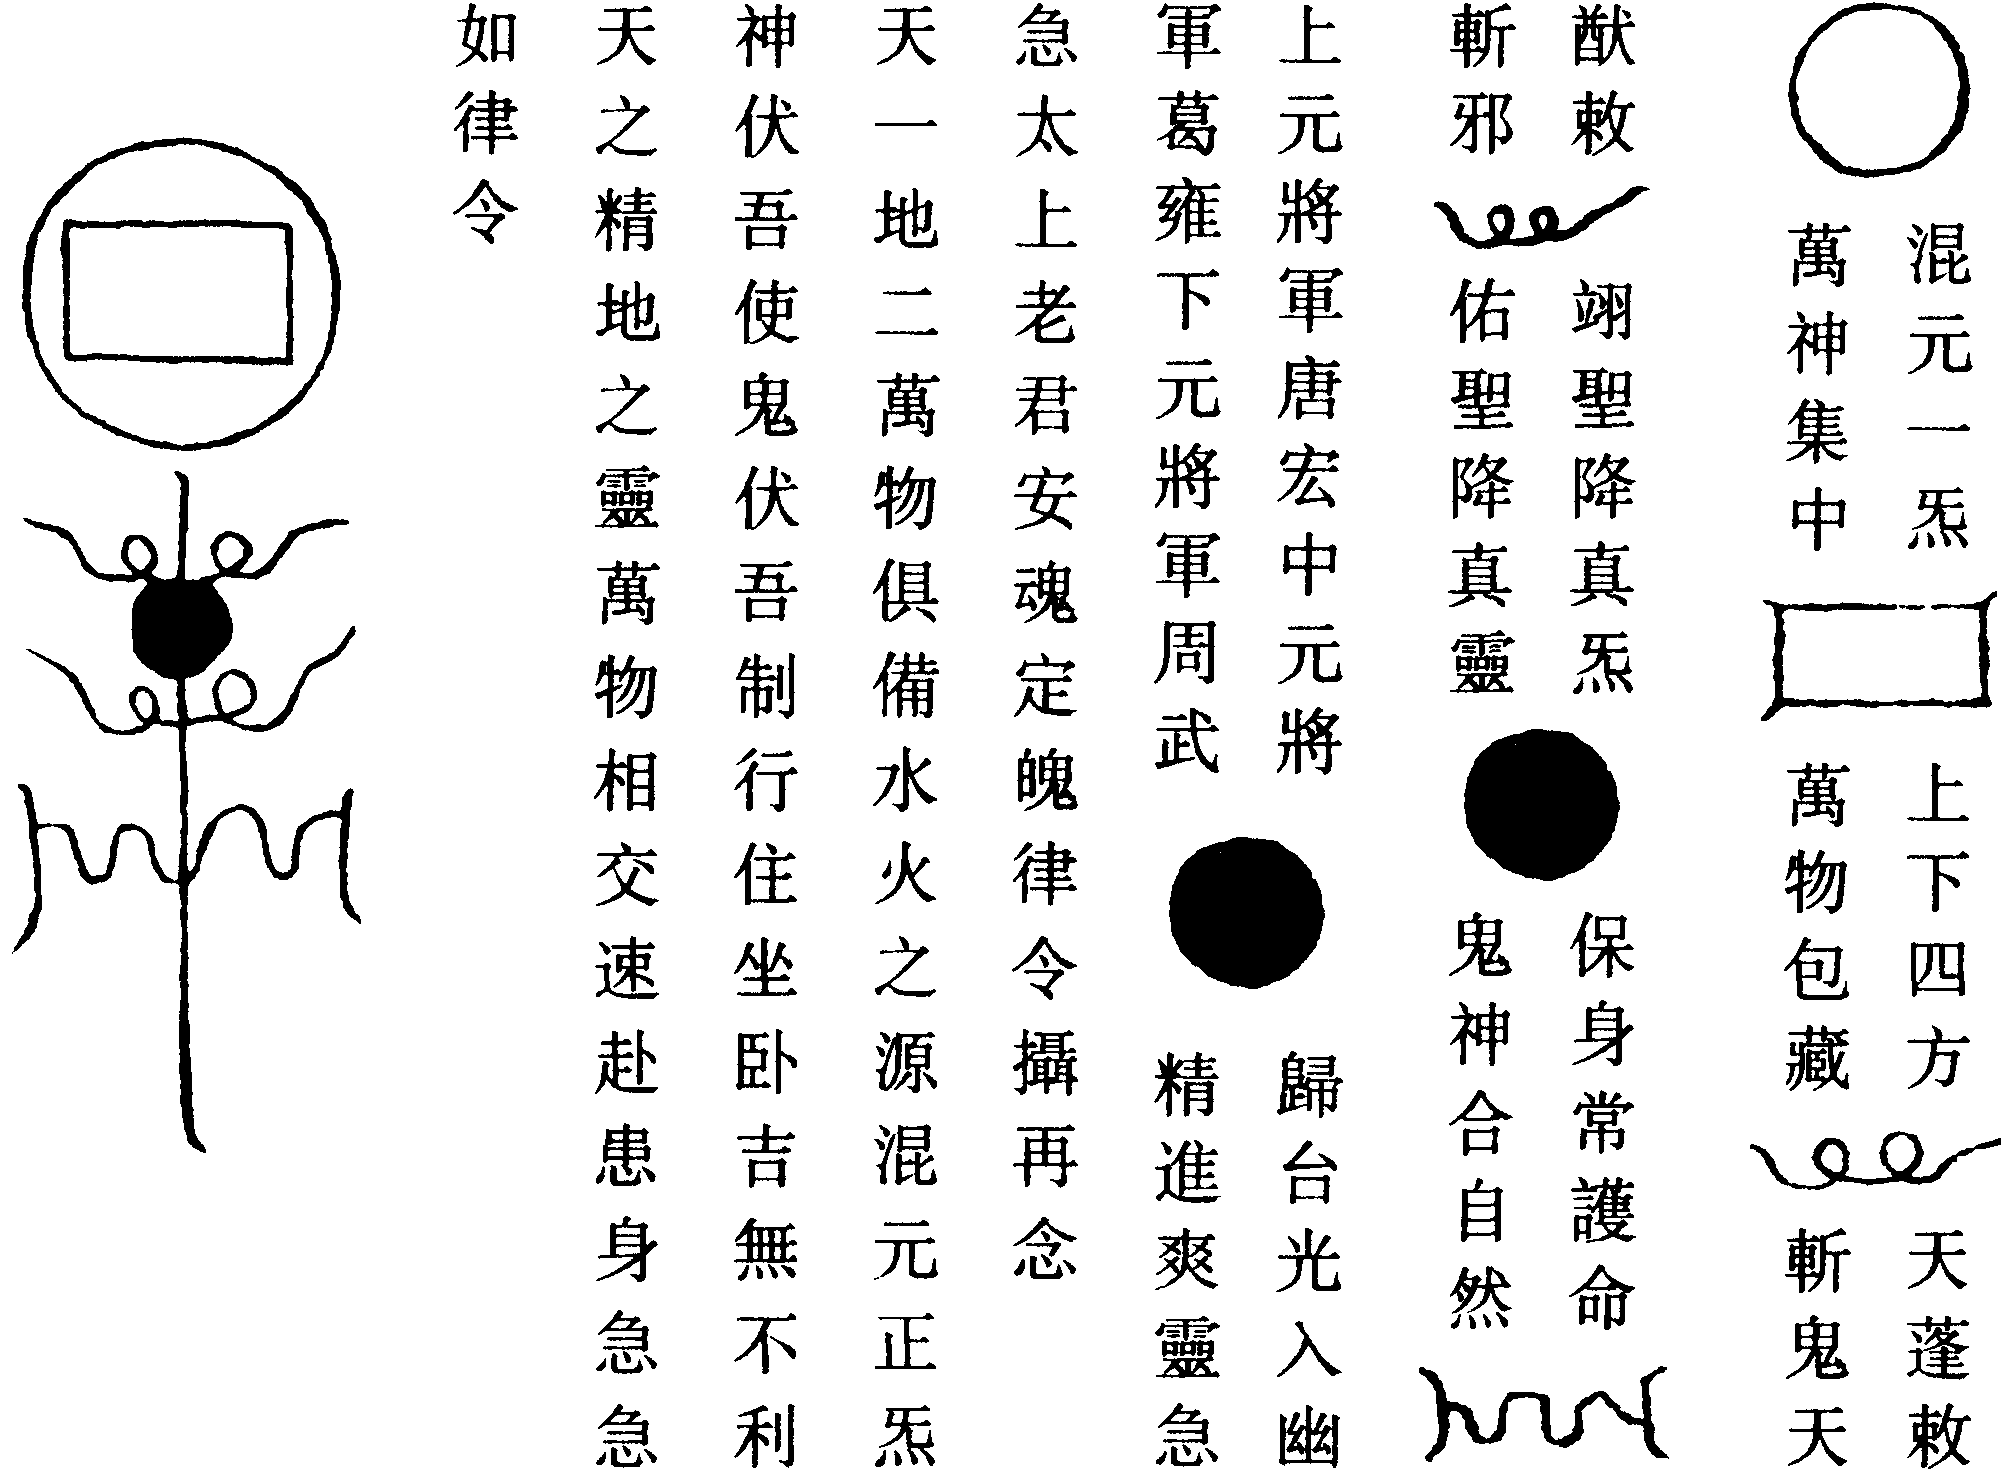 混元一炁
萬神集中
上下四方
萬物包藏
天蓬敕
斬鬼天
猷敕
斬邪
翊聖降真炁
佑聖降真靈
保身常護命
鬼神合自然
上元將軍唐宏中元將
軍葛雍下元將軍周武
歸台光入幽
精進爽靈急
急太上老君安魂定魄律令攝再念
天一地二萬物俱備水火之源混元正炁
神伏吾使鬼伏吾制行住坐卧吉無不利
天之精地之靈萬物相交速赴患身急急
如律令